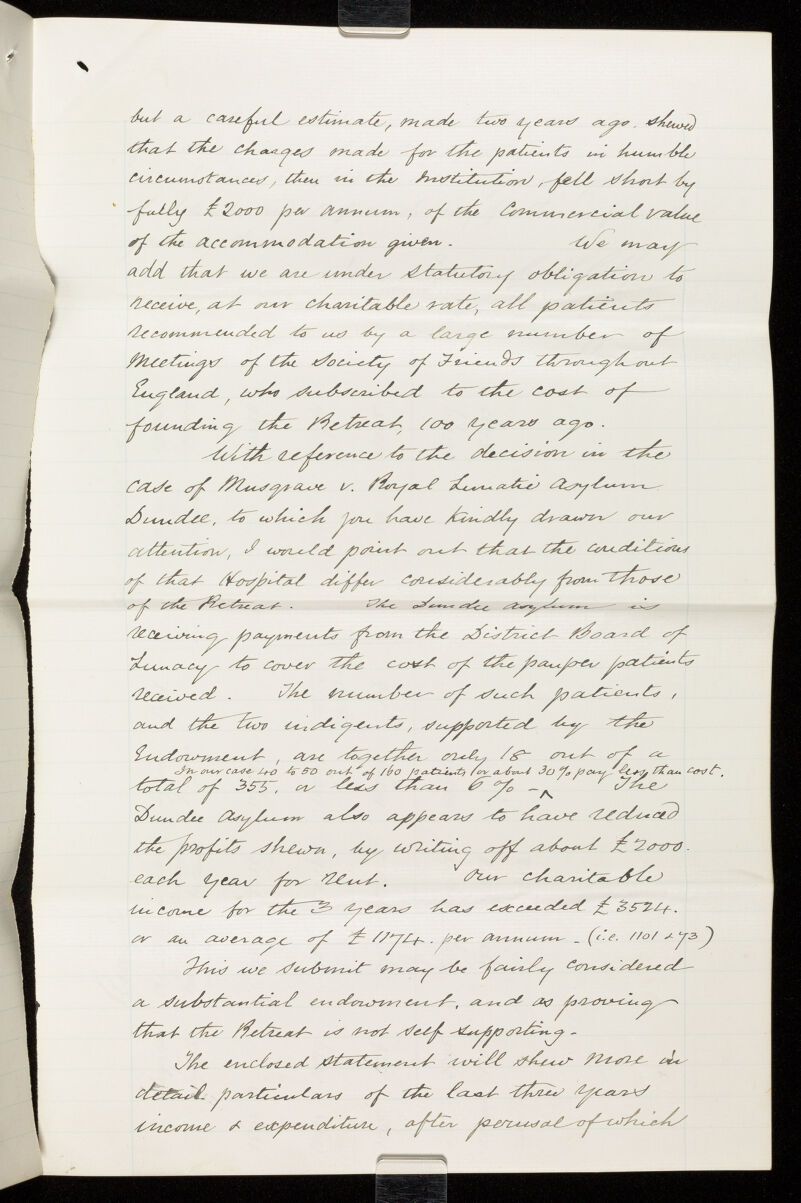 but a careful estimate, made two years ago. shewed
that the charges made for the patients in humble
circumstances, then in the Institution, fell short by
fully £2000 per annum, of the Commercial value
of the accommodation given. We may
add that we are under statutory obligation to
receive, at our charitable rate, all patients
recommended to us by a large number of
Meetings of the Society of Friends throughout
England, who subscribed to the cost of
founding the Retreat, 100 years ago.
With reference to the decision in the
case of Musgrave v. Royal Lunatic Asylum
Dundee, to which you have kindly drawn our
attention, I would point out that the conditions
of that Hospital differ considerably from those
of the Retreat. The Dundee Asylum is
receiving payments from the District Board of
Lunacy to cover the cost of the pauper patients
received. The number of such patients,
and the two indigents, supported by the
Endowment, are together only 18 out of a
In our case 40 to 50 out of 160 patients (or about 30% pay less than cost.
total of 355, or less than 6% - ^ The
Dundee Asylum also appears to have reduced
the profits shewn, by writing off about £2000.
each year for rent. Our charitable
income for the 3 years has exceeded £3524.
or an average of £1174. per annum - (i.e. 1101 + 73)
This we submit may be fairly considered
a substantial endowment, and as proving
that the Retreat is not self supporting.
The enclosed statement will shew more in
detail particulars of the last three years
income & expenditure, after perusal of which